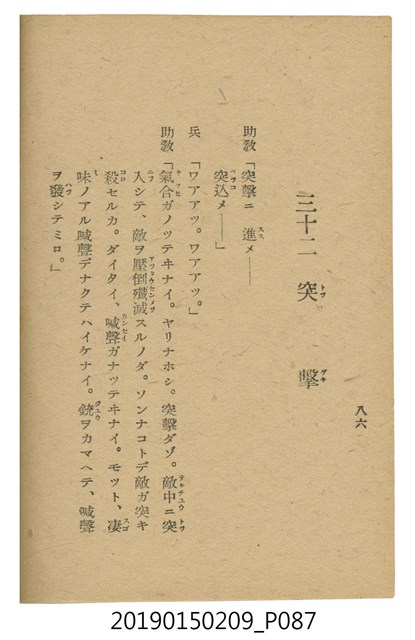 三十二　突　撃
助教「突撃ニ　進メ――
突込メ――」
兵　「ワアアツ。ワアアツ。」
助教「氣合ガノツテキナイ。ヤリナホシ。突撃ダゾ。敵中ニ突
入シテ、敵ヲ壓倒殲滅スルノダ。ソンナコトデ敵ガ突キ
殺セルカ。ダイタイ、喊聲ガナツテキナイ。モツト、凄
味ノアル喊聲デナクテハイケナイ。銃ヲカマヘテ、喊聲
ヲ發シテミロ。」
八六
20190150209_P087